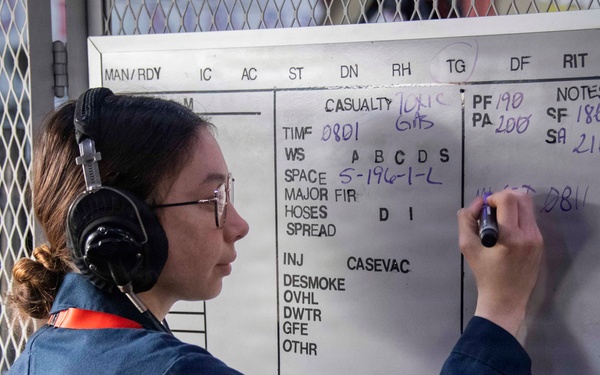 MAN/RDY IC AC ST DN RH TG DF RIT
M
CASUALTY TOXIC GAS
TIME 0801
WS A B C D S
SPACE 5-196-1-L
MAJOR FIR
HOSES D I
SPREAD
INJ CASEVAC
DESMOKE
OVHL
DWTR
GFE
OTHR
PF 190
PA 200
0811
NOTES
SF
SA